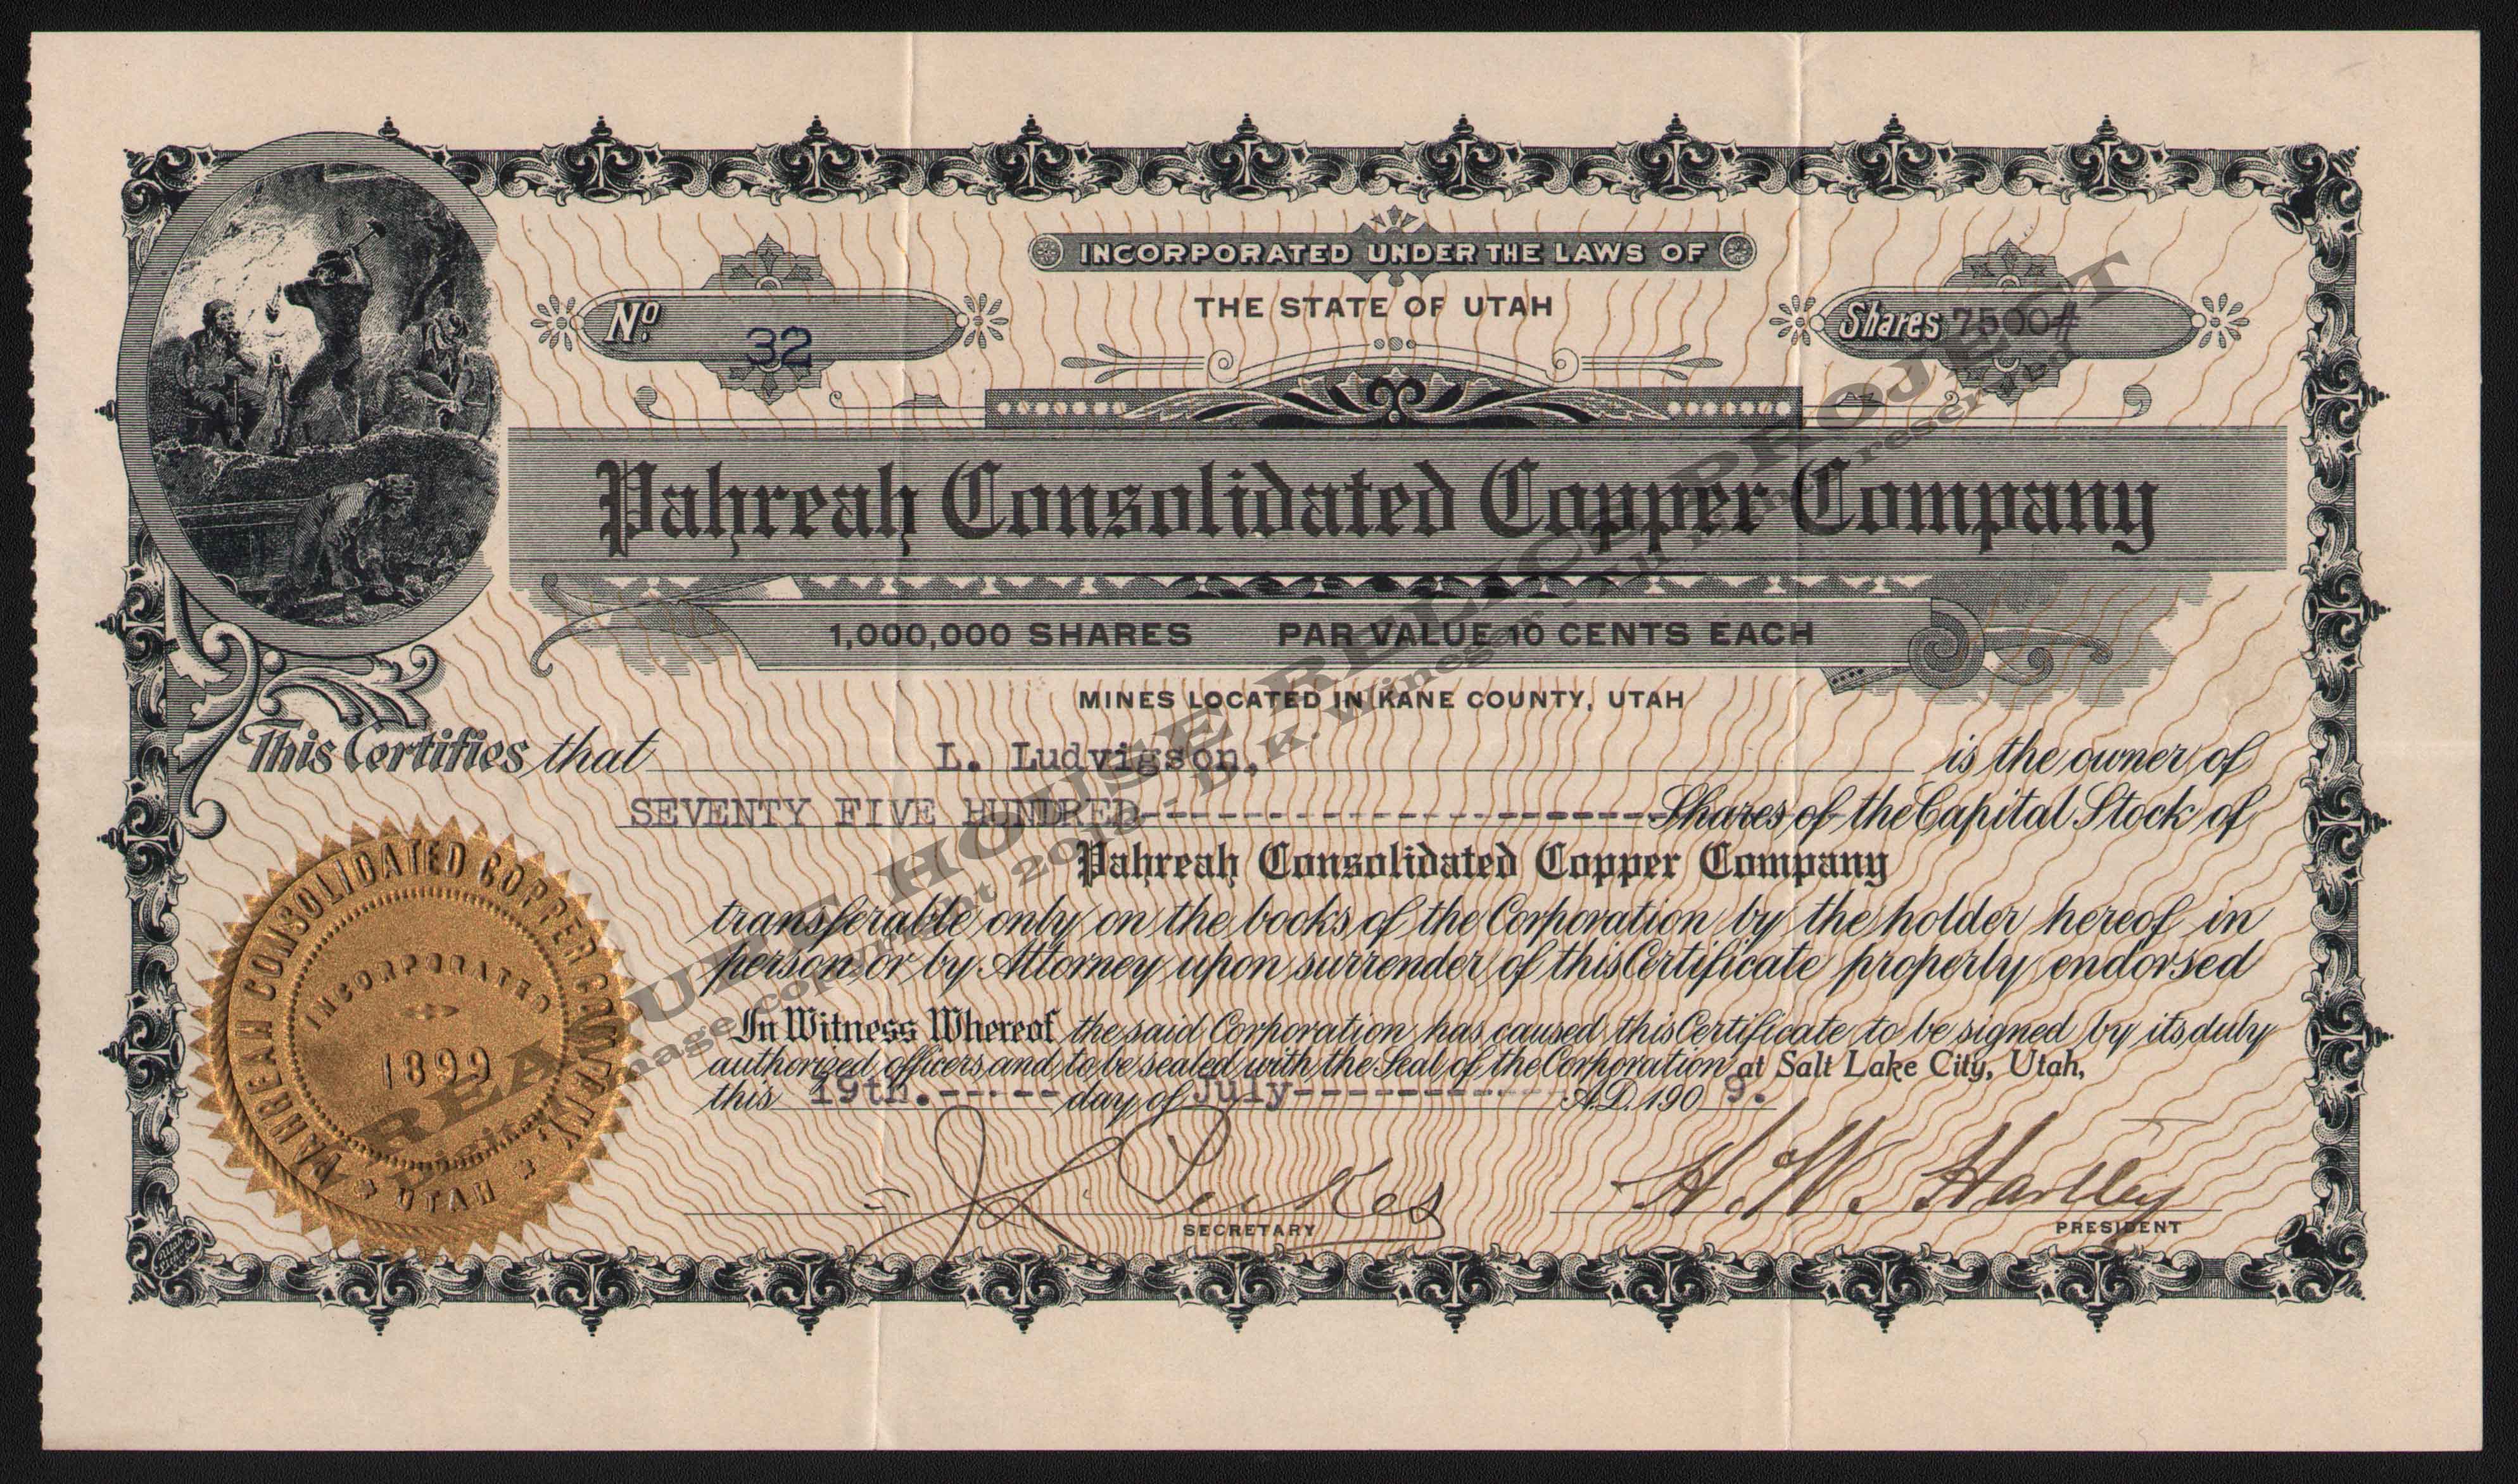 INCORPORATED UNDER THE LAWS OF
THE STATE OF UTAH
No. 32
Shares 7500#
Pahreah Consolidated Copper Company
1,000,000 SHARES PAR VALUE 10 CENTS EACH
MINES LOCATED IN KANE COUNTY, UTAH
This Certifies that L. Ludvigson, is the owner of
SEVENTY FIVE HUNDRED Shares of the Capital Stock of
Pahreah Consolidated Copper Company
transferable only on the books of the Corporation by the holder hereof in
person or by Attorney upon surrender of this Certificate properly endorsed
In Witness Whereof the said Corporation has caused this Certificate to be signed by its duly
authorized officers and to be sealed with the Seal of the Corporation at Salt Lake City, Utah,
this 19th. day of July A.D. 1909.
H. W. Hartley
SECRETARY
PRESIDENT
PAHREAH CONSOLIDATED COPPER COMPANY,
INCORPORATED
1899
UTAH
HOUSE RELICS PROJECT